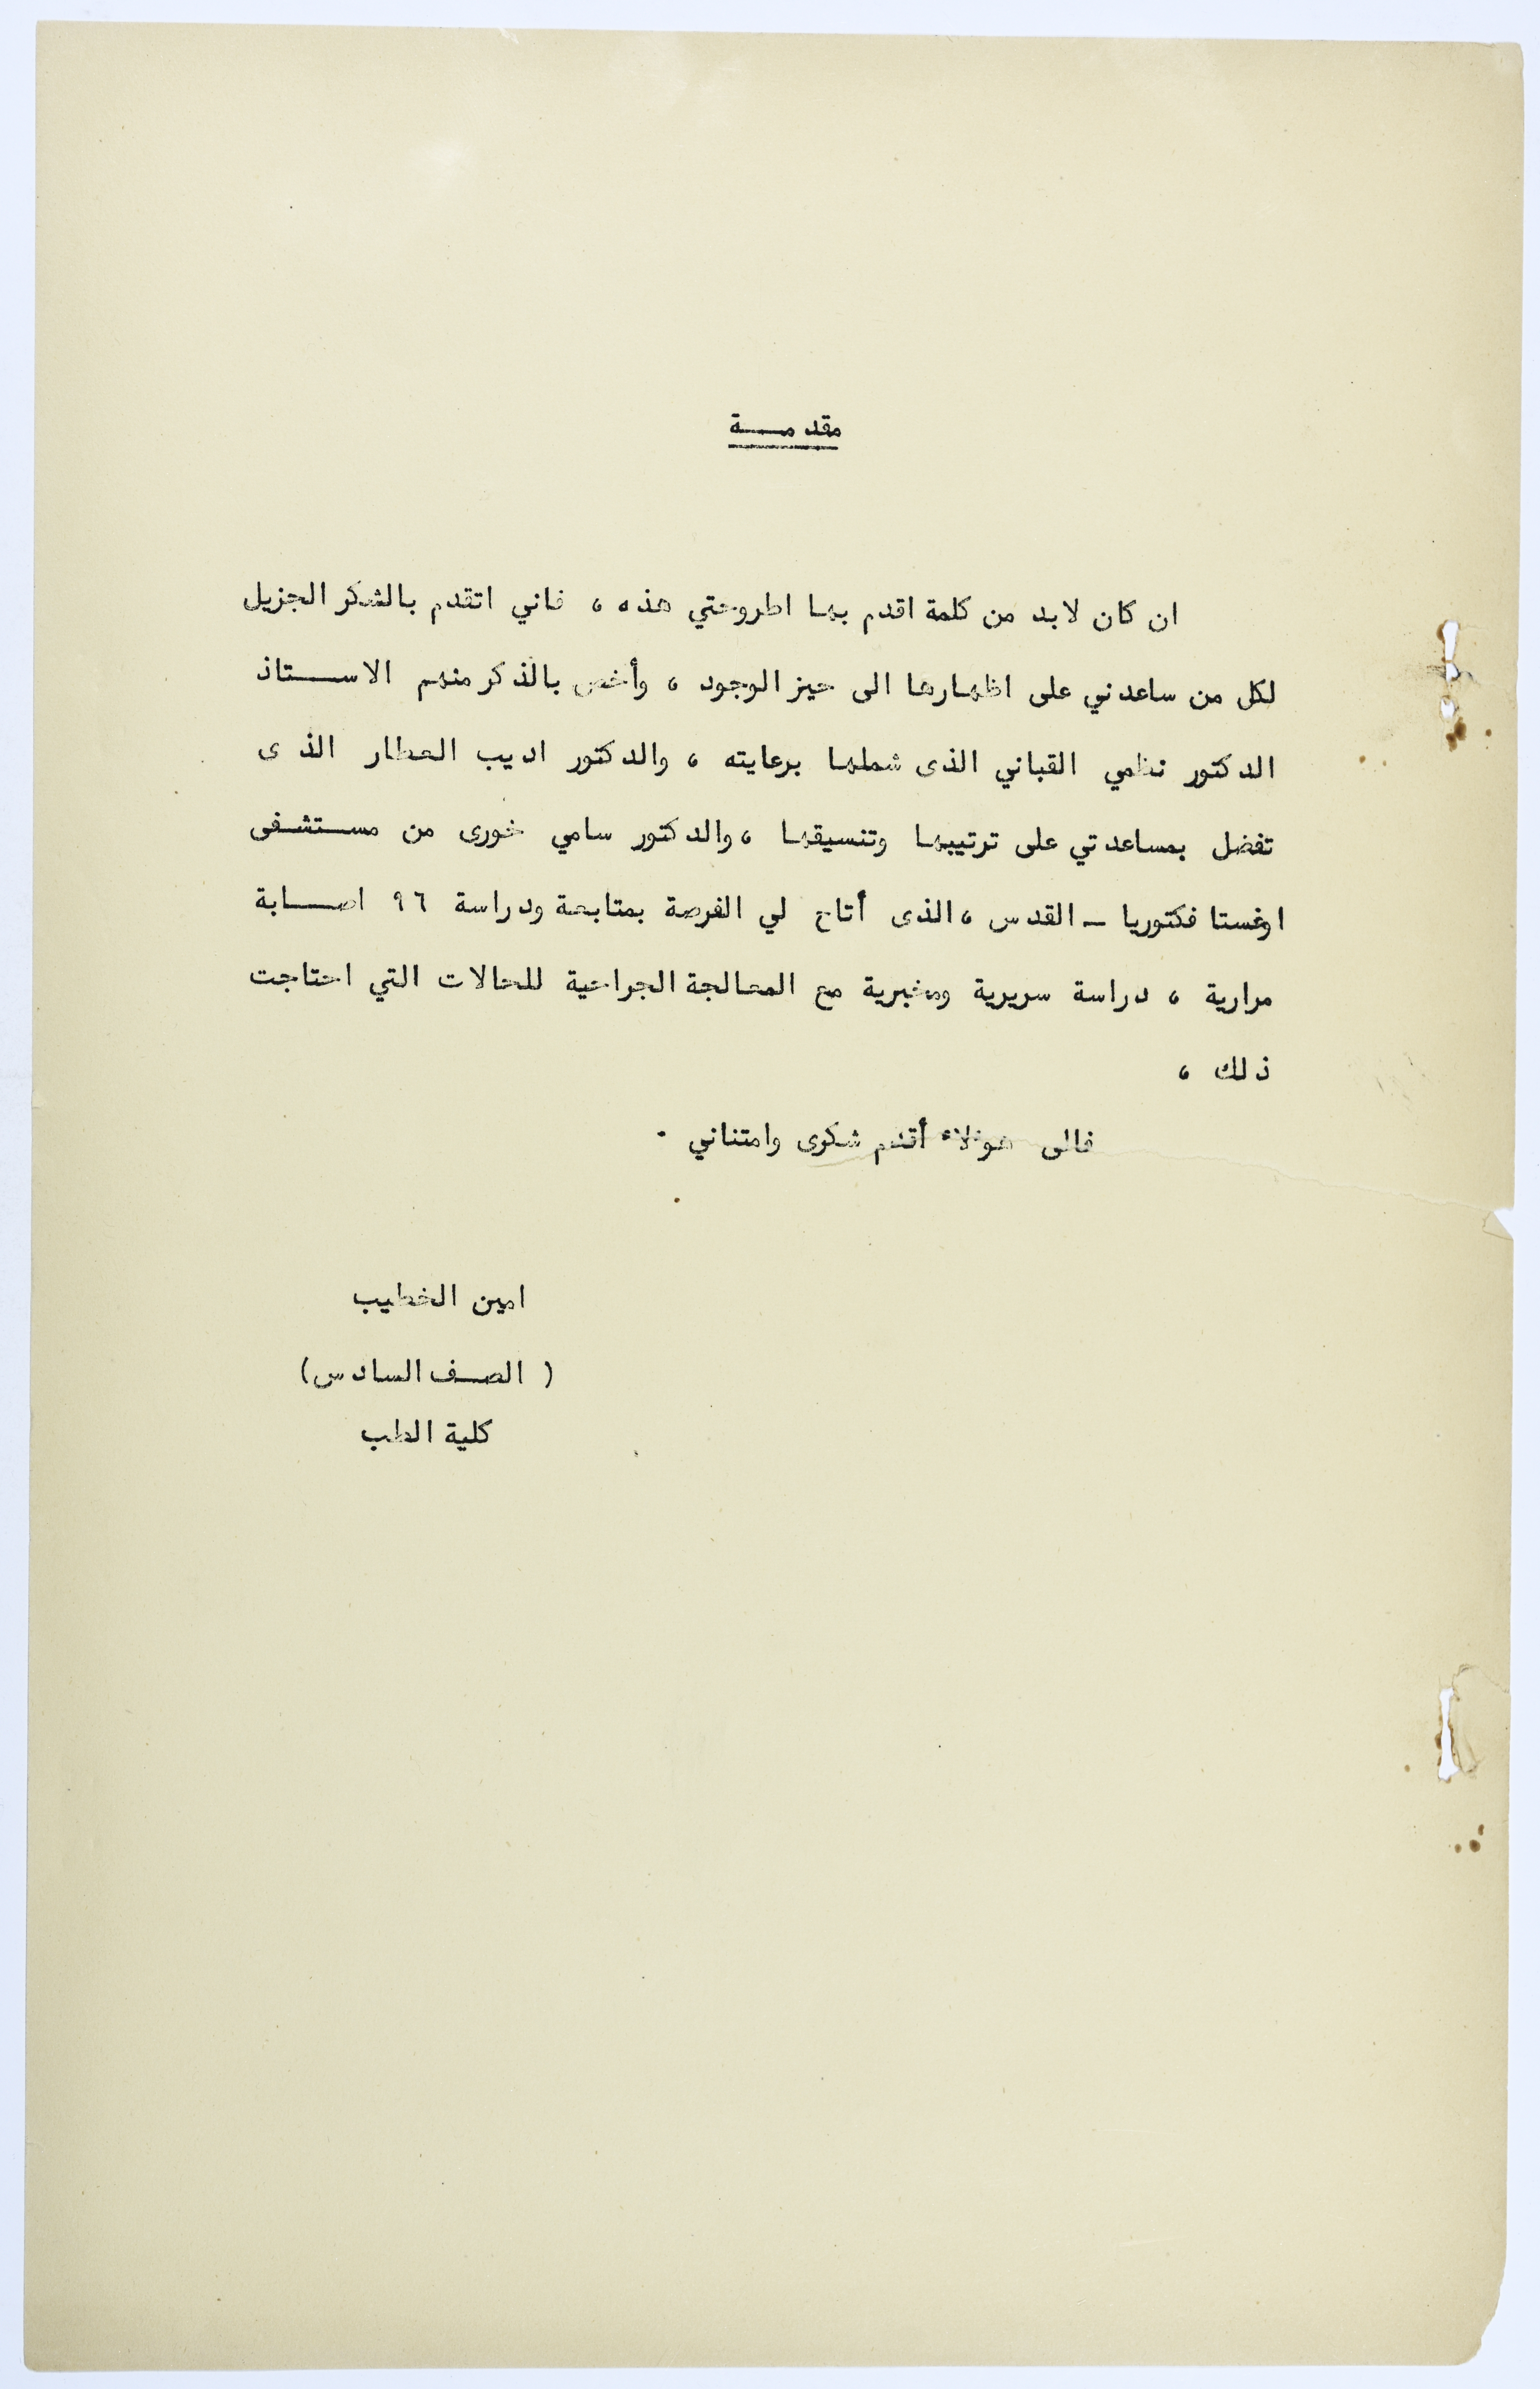 مقدمـــة
ان كان لابد من كلمة اقدم بها اطروحتي هذه ، فاني اتقدم بالشكر الجزيل
لكل من ساعدني على اظهارها الى حيز الوجود ، وأخص بالذكر منهم الاســـتاذ
الدكتور نظمي القباني الذى شملها برعايته ، والدكتور اديب العطار الذى
تفضل بمساعدتي على ترتيبها وتنسيقها ، والدكتور سامي خورى من مســتشــفى
اوغستا فكتوريا ـ القدس ، الذى أتاح لي الفرصة بمتابعة ودراسة ٩٦ اصـــابة
مرارية ، دراسة سريرية ومخبرية مع المعالجة الجراحية للحالات التي احتاجت
ذلك ،
فالى هؤلاء أقدم شكرى وامتناني .
امين الخطيب
( الصــف السادس)
كلية الطب